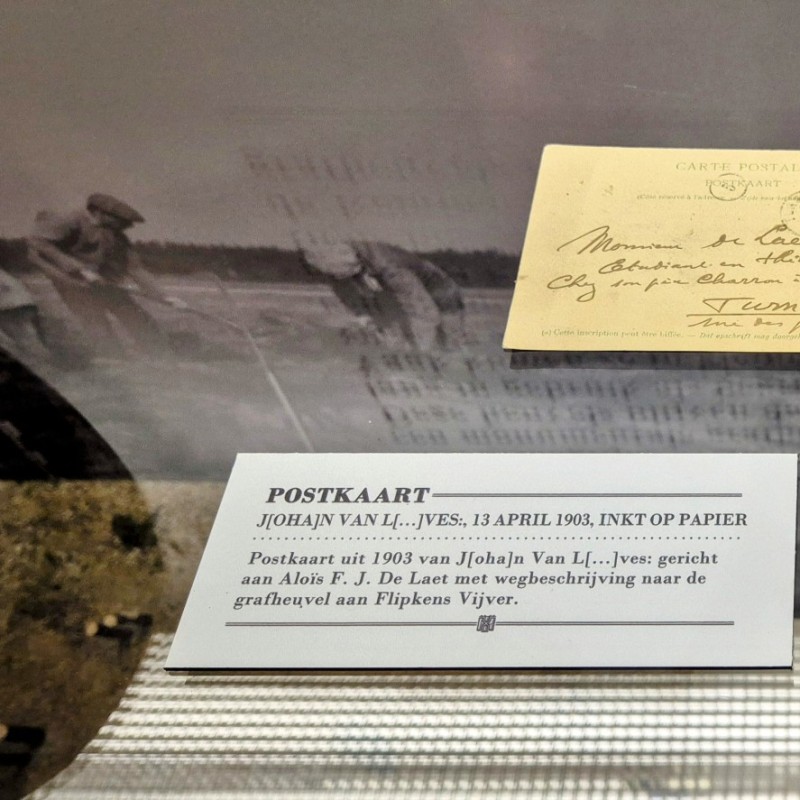 CARTE POSTAL
POSTKAART
Monsieur de Lae
Etudiant en
Chez son père Charron
Turn
rue des
(1) Cette inscription peut être biffée. — Dat opschrift mag
POSTKAART
J[OHA]N VAN L[...]VES:, 13 APRIL 1903, INKT OP PAPIER
Postkaart uit 1903 van J[oha]n Van L[...]ves: gericht
aan Aloïs F. J. De Laet met wegbeschrijving naar de
grafheuvel aan Flipkens Vijver.